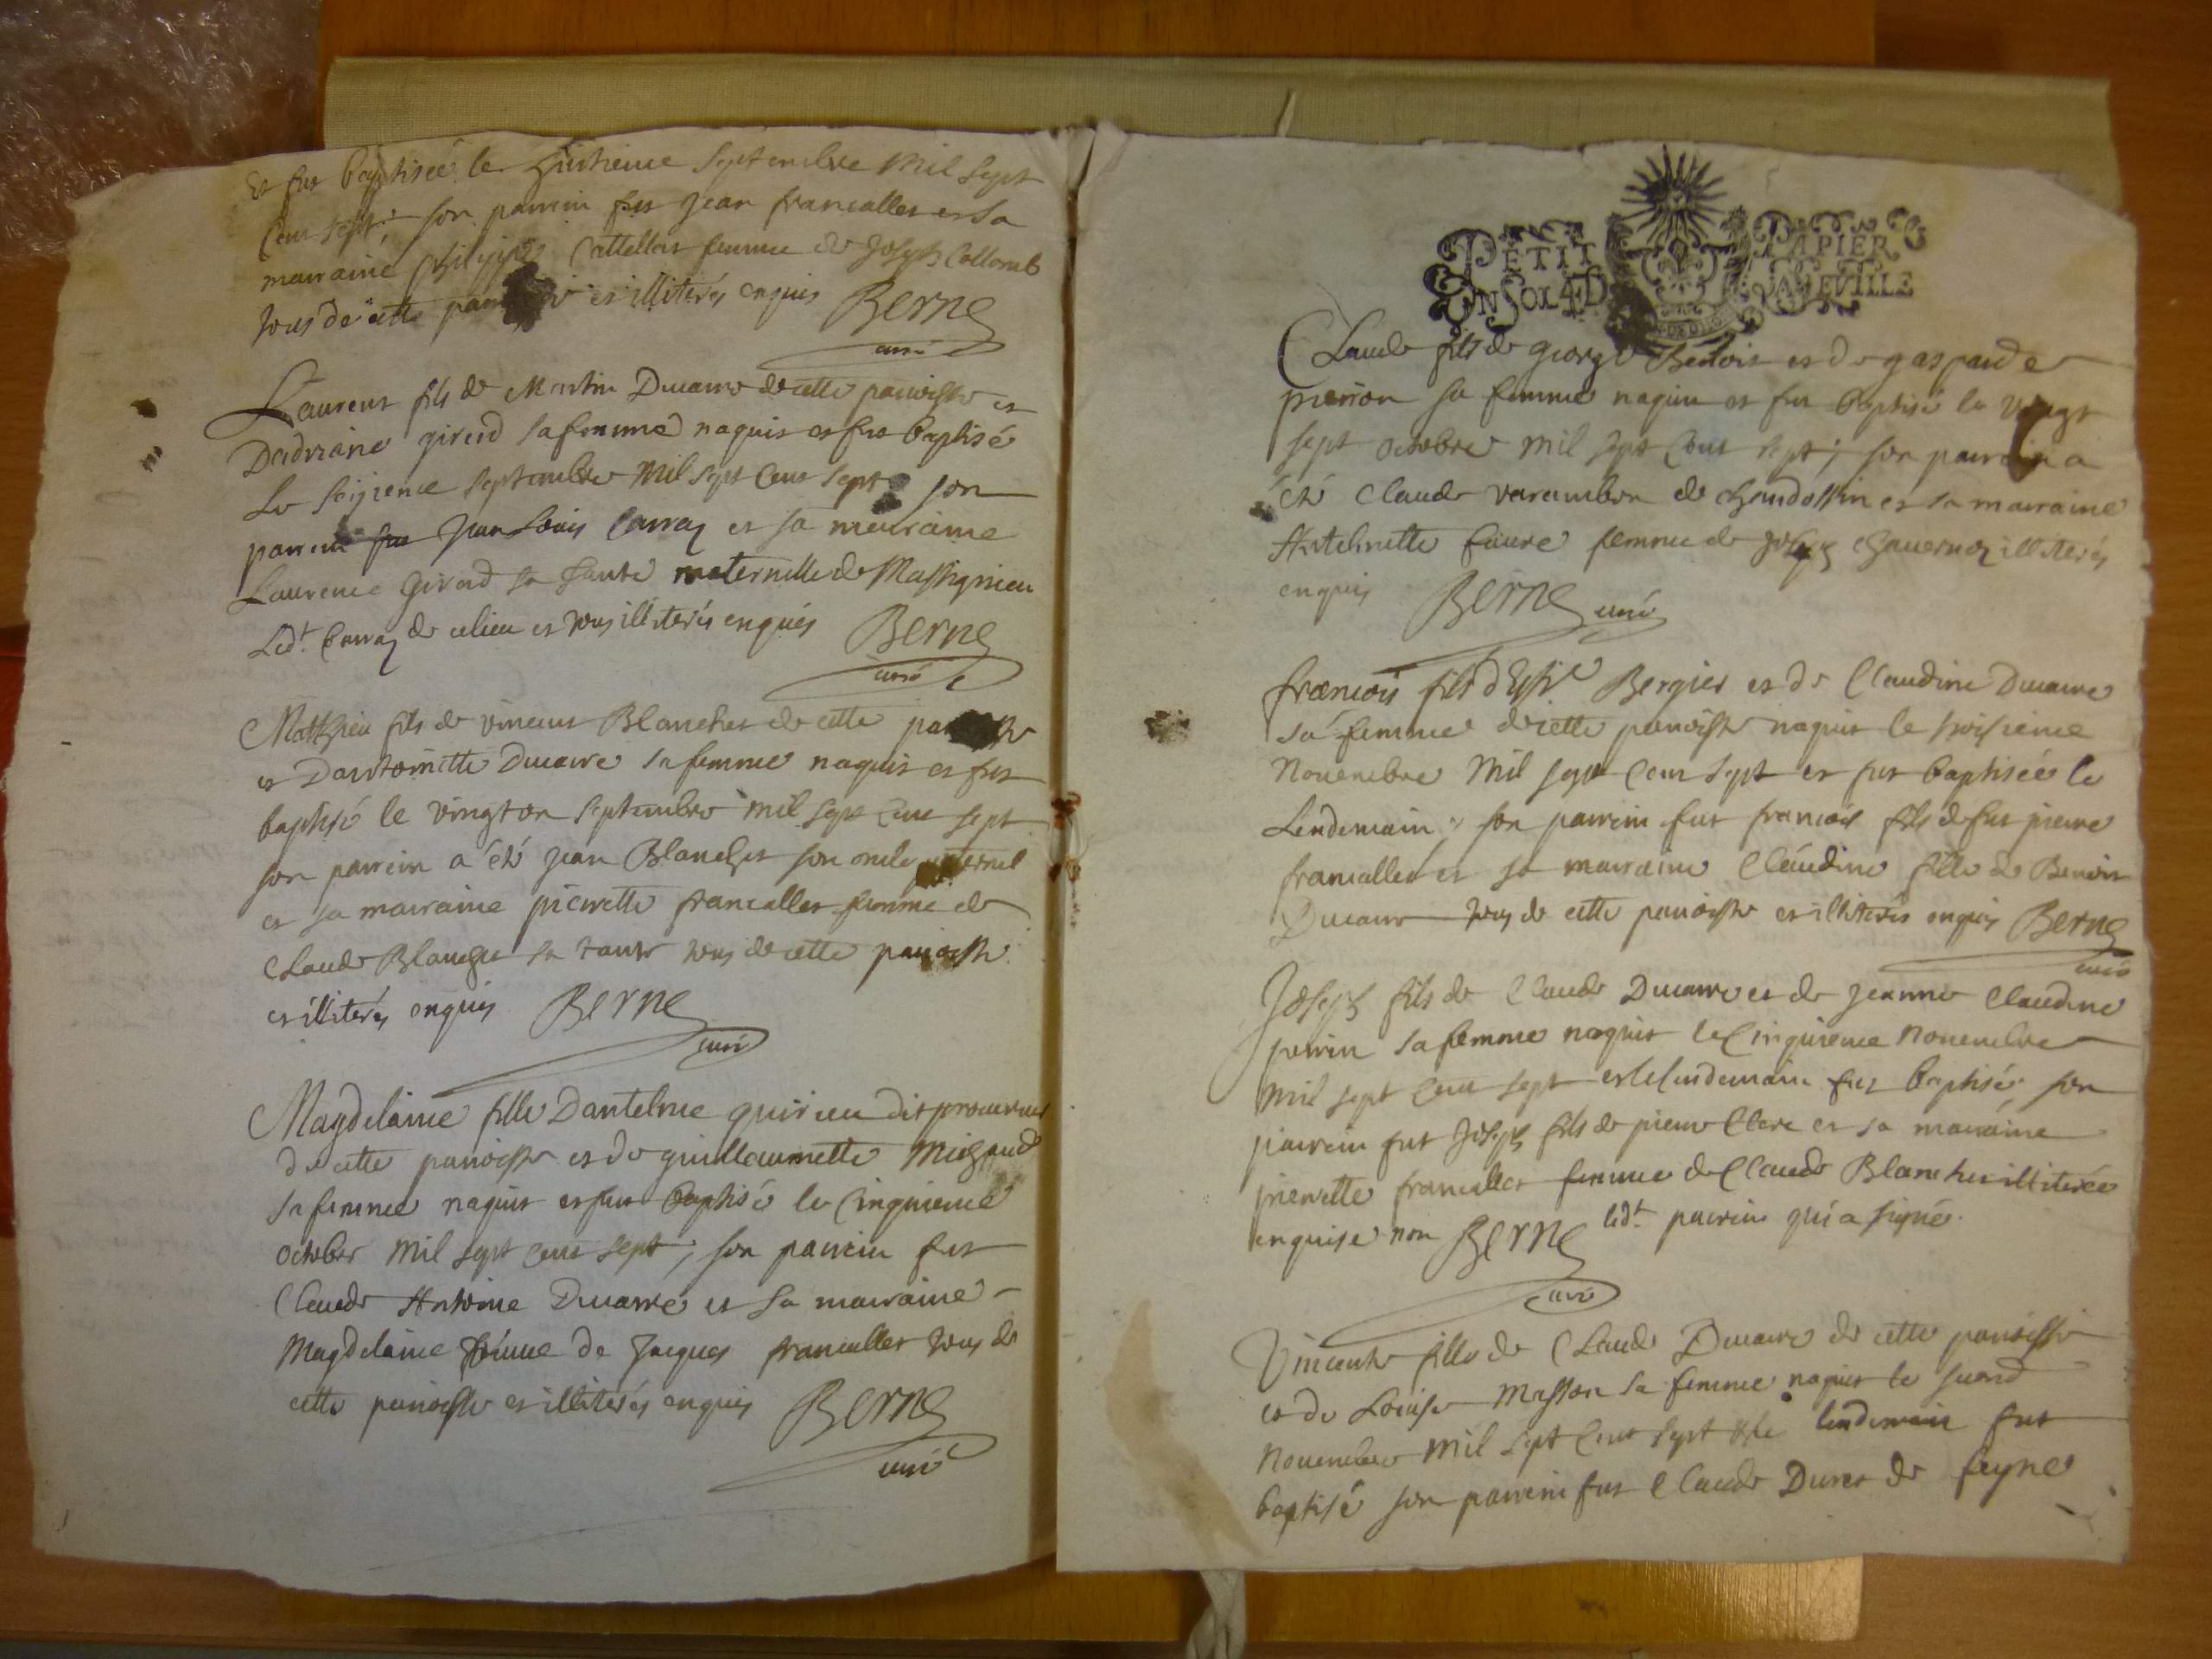 et fut baptisée le huitieme septembre mil sept
cent sept; son parrein fut jean francallet et sa
marraine philippe Cattellas femme de joseph Collomb
tous de cette et illiterés enquis Berne
curé
Laurent fils de Martin Ducarre de cette parroisse et
Dadriane girerd sa femme naquit et fut baptisé
le seizieme septembre mil sept cent sept son
parrein fut jean Louis Carraz et sa marraine
Laurence Girard sa tante maternelle de Massignieu
Ledt. Carraz de celieu et tous illiterés enquis Berne
curé
Matthieu fils de vincent Blanchet de cette
et Dantoinette Ducarre sa femme naquit et fut
baptisé le vingt on septembre mil sept cent sept
son parrein a été jean Blanchet son oncle paternel
et sa marraine pierrette francallet femme de
Claude Blanchet sa tante tous de cette parroisse
et illiterés enquis Berne
curé
Magdelaine fille Dantelme dit
de cette parroisse et de guillaumette
sa femme naquit et fut baptisé le Cinquieme
october mil sept cent sept; son parrein fut
Claude Antoine Ducarre et sa marraine
Magdelaine femme de jacques francallet tous de
cette parroisse et illiterés enquis Berne
curé
PETIT PAPIER
UN SOL 4 D LA FEUILLE
Claude fils de george Benoit et de gasparde
pierron sa femme naquit et fut baptisé le vingt
sept octobre mil sept cent sept; son parrein a
été Claude varambon de chandossin et sa marraine
Antelmette faure femme de joseph chavernoz illiterés
enquis Berne curé
francois fils d Bergier et de Claudine Ducarre
sa femme de cette parroisse naquit le troisieme
Novembre mil sept cent sept et fut baptisée le
Lendemain; son parrein fut francois fils de fut pierre
francallet et sa marraine Claudine fille de Benoit
Ducarre tous de cette parroisse et illiterés enquis Berne
curé
Joseph fils de Claude Ducarre et de jeanne Claudine
perrin sa femme naquit le Cinquieme Novembre
mil sept cent sept et le lendemain fut baptisé; son
parrein fut Joseph fils de pierre Clerc et sa marraine
pierrette francallet femme de Claude Blanchet illiterée
enquise non Berne ledt. parrein qui a signé.
curé
Vincente fille de Claude Ducarre de cette parroisse
et de Loüise Masson sa femme naquit le second
Novembre mil sept cent sept et le lendemain fut
baptisé son parrein fut Claude Duret de feyne